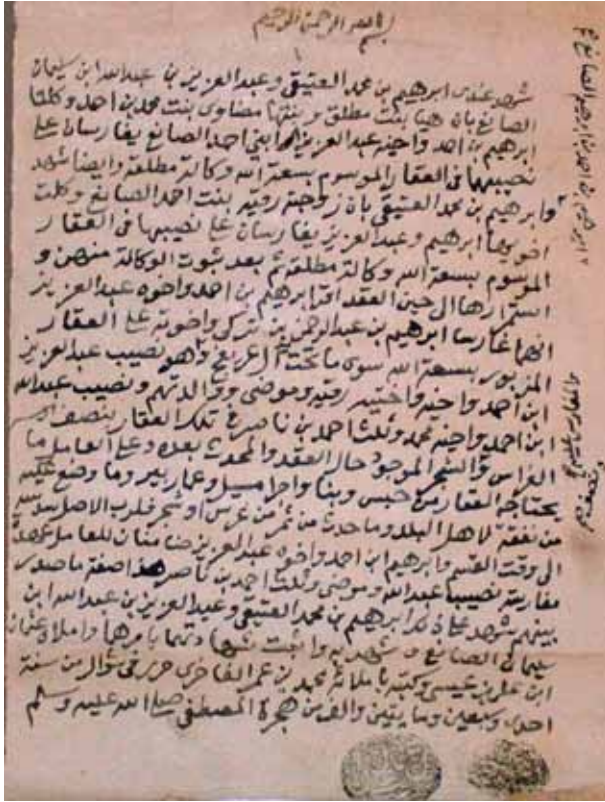 بسم الله الرحمن الرحيم
شهد عندي ابرهيم بن محمد العتيقي وعبد العزيز بن عبد الله ابن سليمان
الصانع بان هيا بنت مطلق وبنتها مضاوي بنت محمد بن احمد وكلتا
ابرهيم بن احمد واخيه عبد العزيز ابني احمد الصانع يغارسان على
نصيبهما في العقار الموسوم بسعة الله وكالة مطلقة وايضا شهد
ابرهيم بن محمد العتيقي بان زوجته رقية بنت احمد الصانع وكلت
اخويها ابرهيم وعبد العزيز يغارسان على نصيبها في العقار
الموسوم بسعة الله وكالة مطلقة ثم بعد ثبوت الوكالة منهن و
استمرارها الى حين العقد اقر ابرهيم بن احمد واخوه عبد العزيز
انهما غارسا ابرهيم بن عبد الرحمن بن تركي واخوته على العقار
المزبور بسعة الله سوى ما تحت وهو نصيب عبد العزيز
ابن احمد واخيه واختيه رقية وموضي ووالدتهم ونصيب عبد الله
ابن احمد واخيه محمد وثلث احمد بن ناصر في تلك العقار بنصف
الغراس والشجر الموجود حال العقد والمحدث بعده وعلى العامل ما
يحتاجه العقار من حبس وبنا واجرا مسيل وعمار بير وما وضع عليه
من نفقة لاهل البلد وما حدث من ثمر من غرس او شجر فلرب الاصل
الى وقت القسم وابرهيم ابن احمد واخوه عبد العزيز ضامنان للعامل عهدة
مغارسة نصيب عبد الله وموضي وثلث احمد بن ناصر هذا صفة ما صدر
بينهم شهد على ذلك ابرهيم بن محمد العتيقي وعبد العزيز بن عبد الله ابن
سليمان الصانع وشهد به واثبت شهادتهما بامرها واملاه عثمان
ابن علي بن عيسى وكتبه باملائه محمد بن عمر الفاخري حرر في شوال من سنة
احدى وسبعين ومايتين والف من هجرة المصطفى صلى الله عليه وسلم